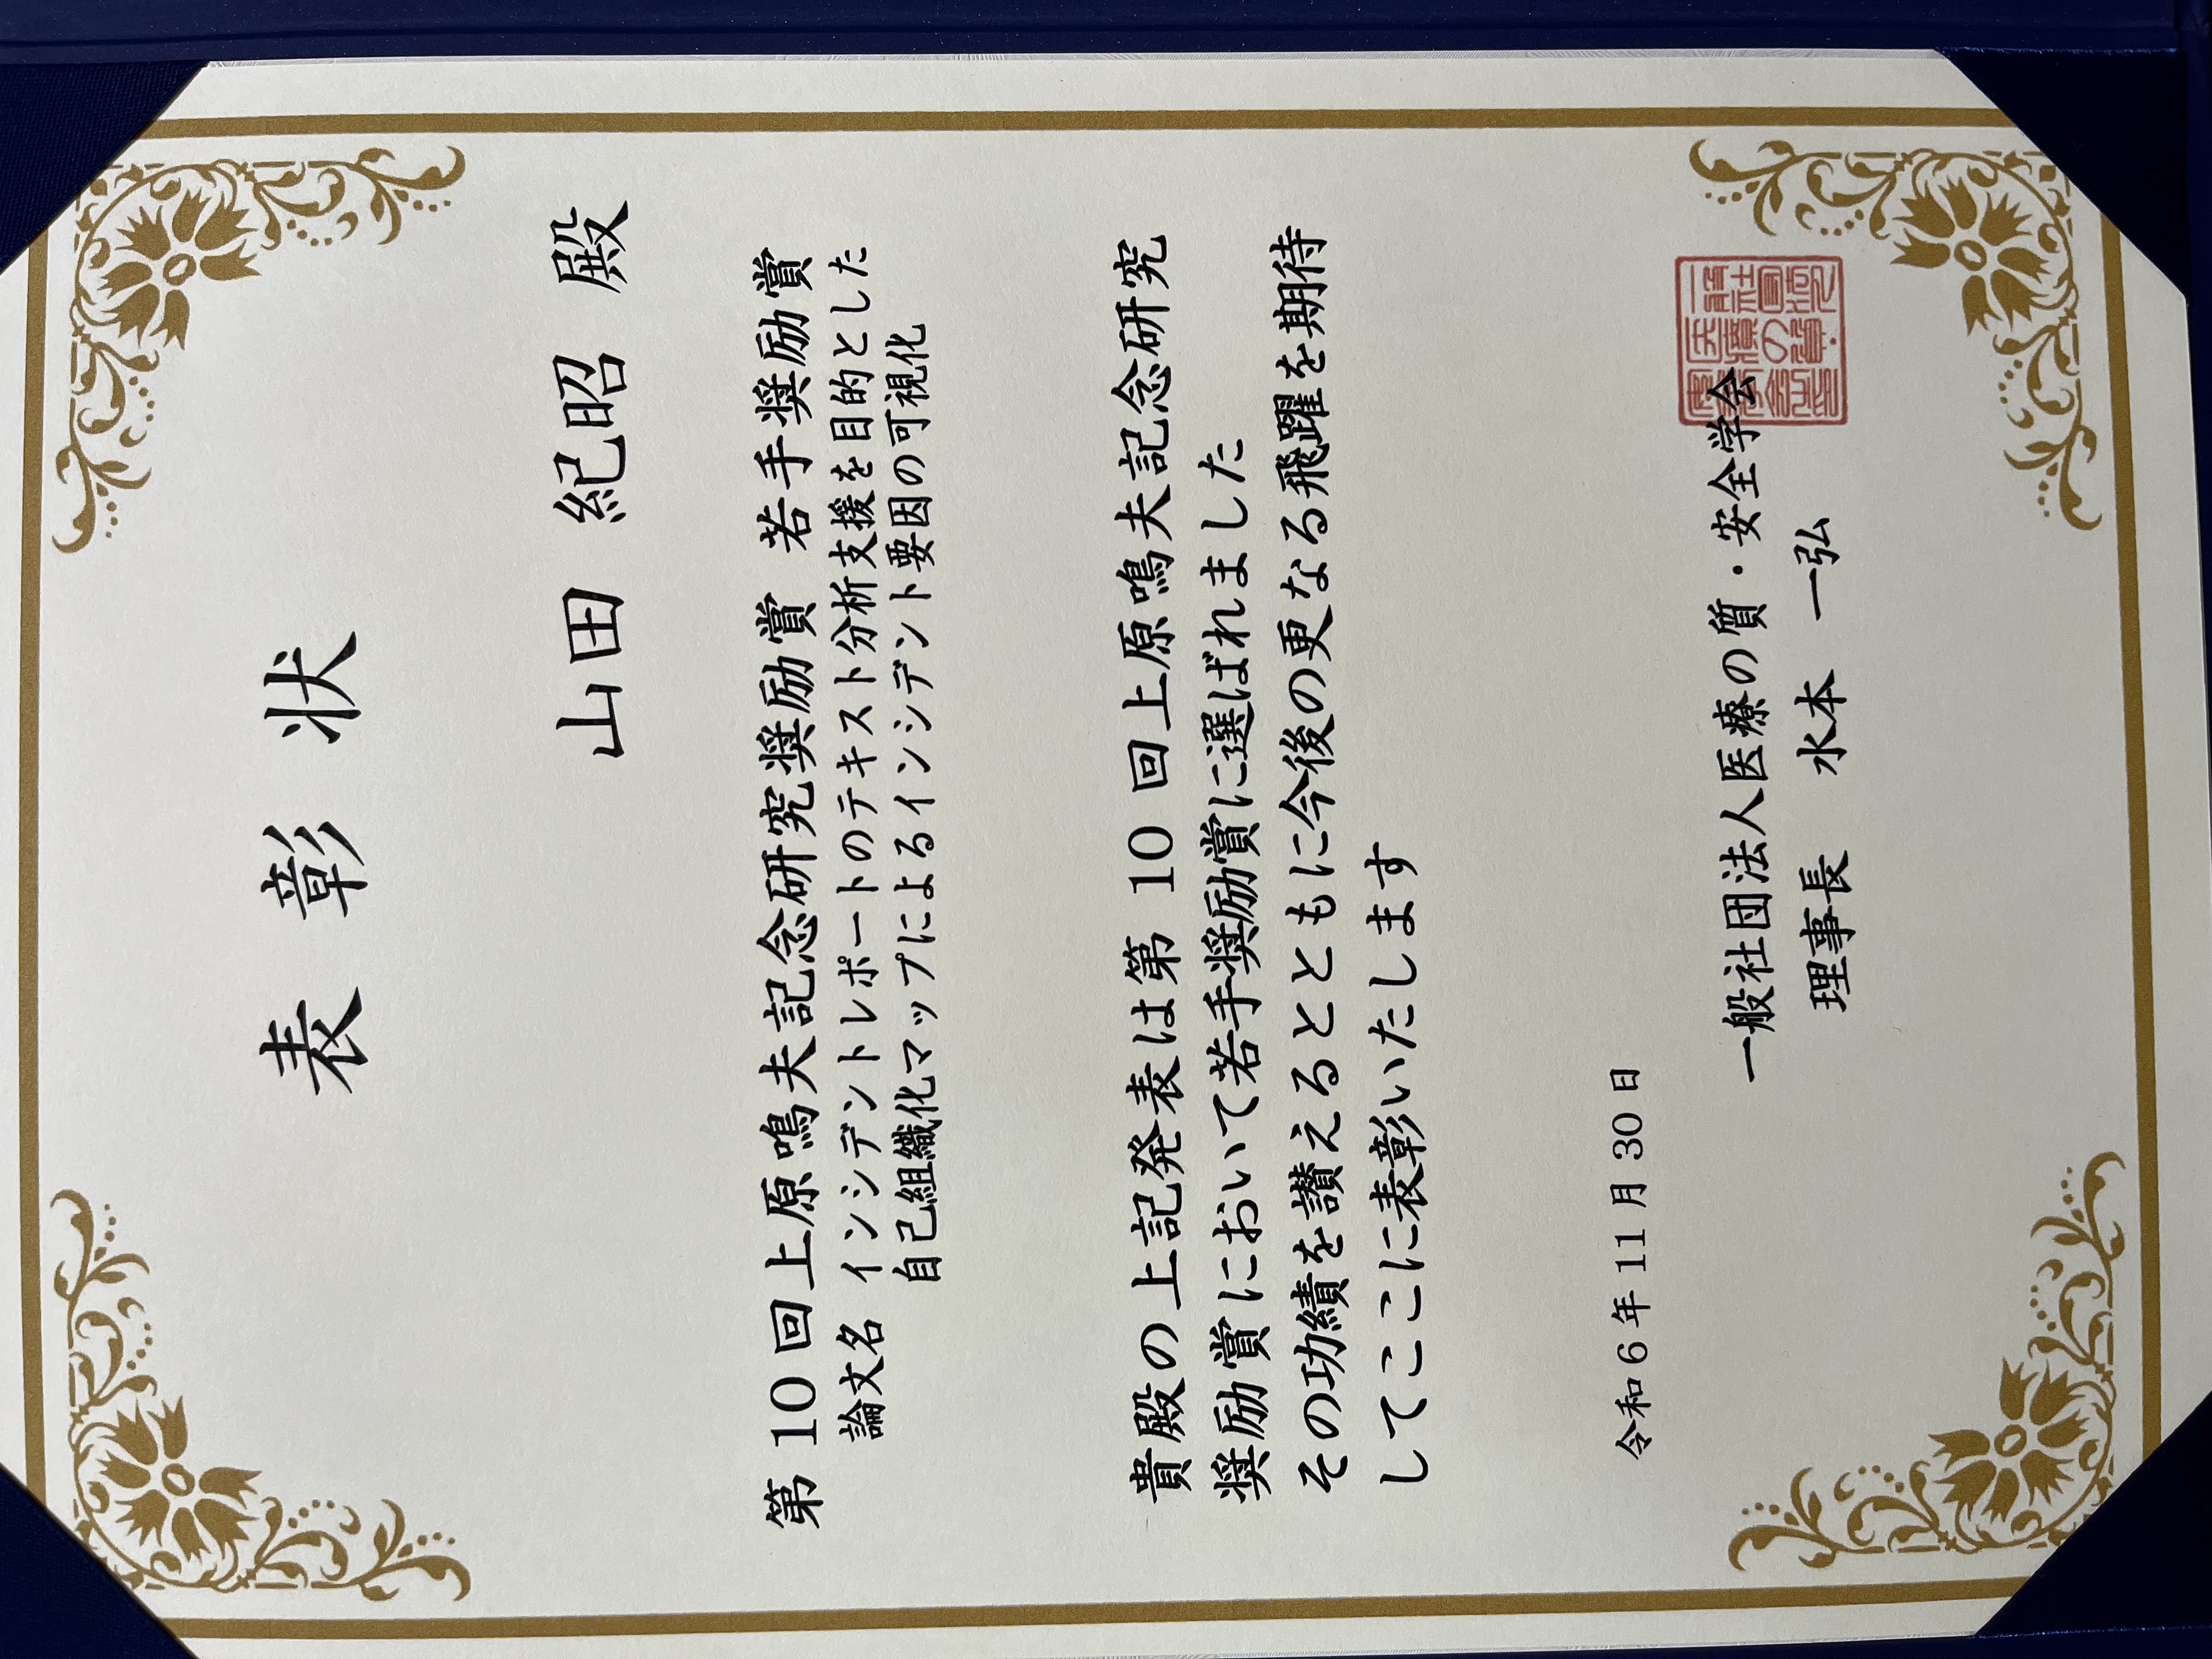 表彰状
山田 紀昭 殿
第10回上原鳴夫記念研究奨励賞 若手奨励賞
論文名 インシデントレポートのテキスト分析支援を目的とした
自己組織化マップによるインシデント要因の可視化
貴殿の上記発表は第10回上原鳴夫記念研究
奨励賞において若手奨励賞に選ばれました
その功績を讃えるとともに今後の更なる飛躍を期待
してここに表彰いたします
令和6年11月30日
一般社団法人医療の質・安全学会
理事長 水本 一弘